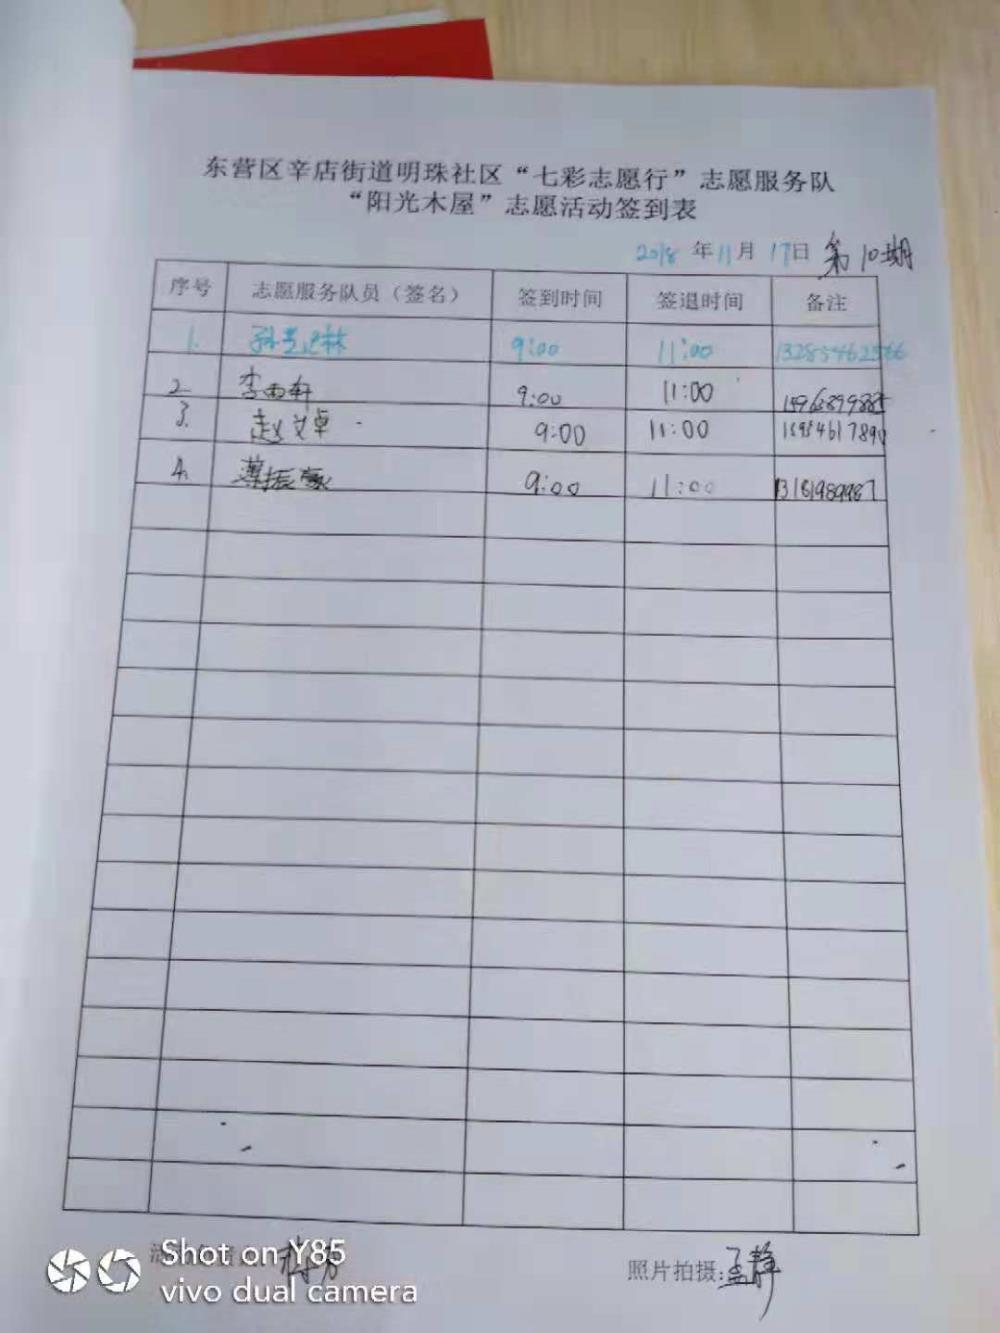 东营区辛店街道明珠社区“七彩志愿行”志愿服务队
“阳光木屋”志愿活动签到表
2018年11月17日 第10期
序号 志愿服务队员（签名） 签到时间 签退时间 备注
1. 9:00 11:00
2 李雨轩 9:00 11:00
3. 赵文卓 9:00 11:00
4. 薄振豪 9:00 11:00 13181989987
照片拍摄:孟静
Shot on Y85
vivo dual camera